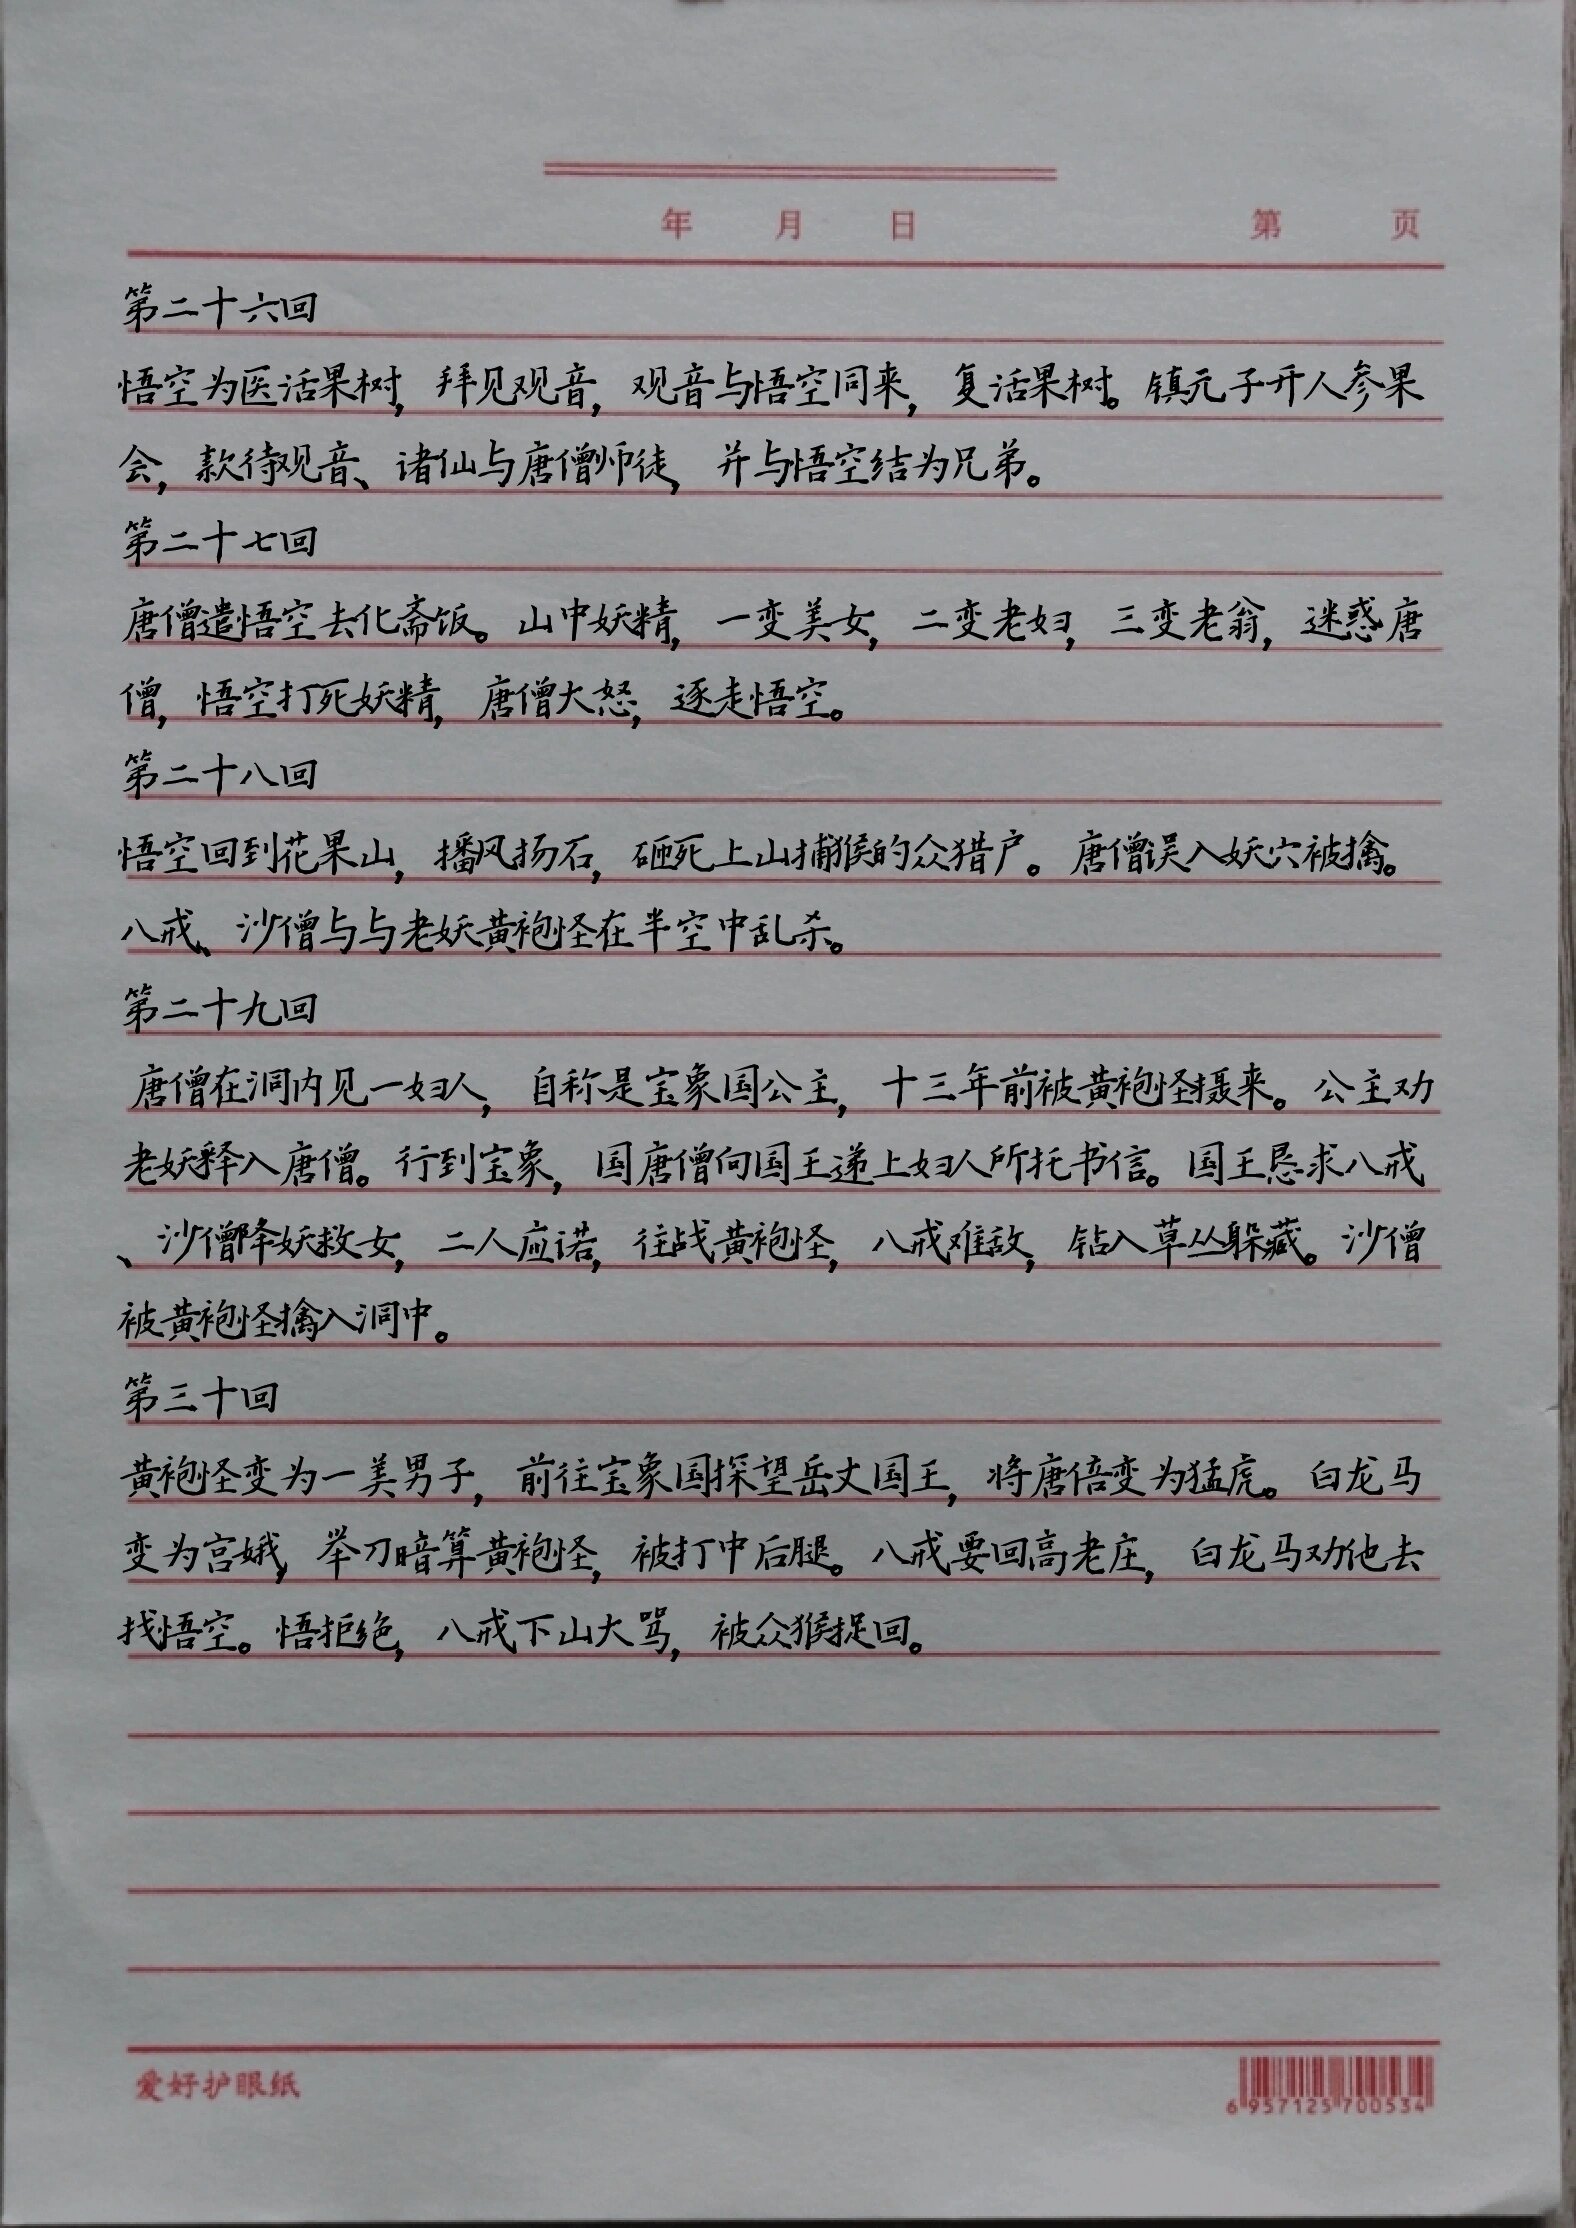 年 月 日 第 页
第二十六回
悟空为医活果树，拜见观音，观音与悟空同来，复活果树。镇元子开人参果
会，款待观音、诸仙与唐僧师徒，并与悟空结为兄弟。
第二十七回
唐僧遣悟空去化斋饭。山中妖精，一变美女，二变老妇，三变老翁，迷惑唐
僧，悟空打死妖精，唐僧大怒，逐走悟空。
第二十八回
悟空回到花果山，播风扬石，砸死上山捕猴的众猎户。唐僧误入妖穴被擒。
八戒、沙僧与与老妖黄袍怪在半空中乱杀。
第二十九回
唐僧在洞内见一妇人，自称是宝象国公主，十三年前被黄袍怪摄来。公主劝
老妖释入唐僧。行到宝象，国唐僧向国王递上妇人所托书信。国王恳求八戒
、沙僧降妖救女，二人应诺，往战黄袍怪，八戒难敌，钻入草丛躲藏。沙僧
被黄袍怪擒入洞中。
第三十回
黄袍怪变为一美男子，前往宝象国探望岳丈国王，将唐倍变为猛虎。白龙马
变为宫娥，举刀暗算黄袍怪，被打中后腿。八戒要回高老庄，白龙马劝他去
找悟空。悟拒绝，八戒下山大骂，被众猴捉回。
爱好护眼纸
6 957125 700534